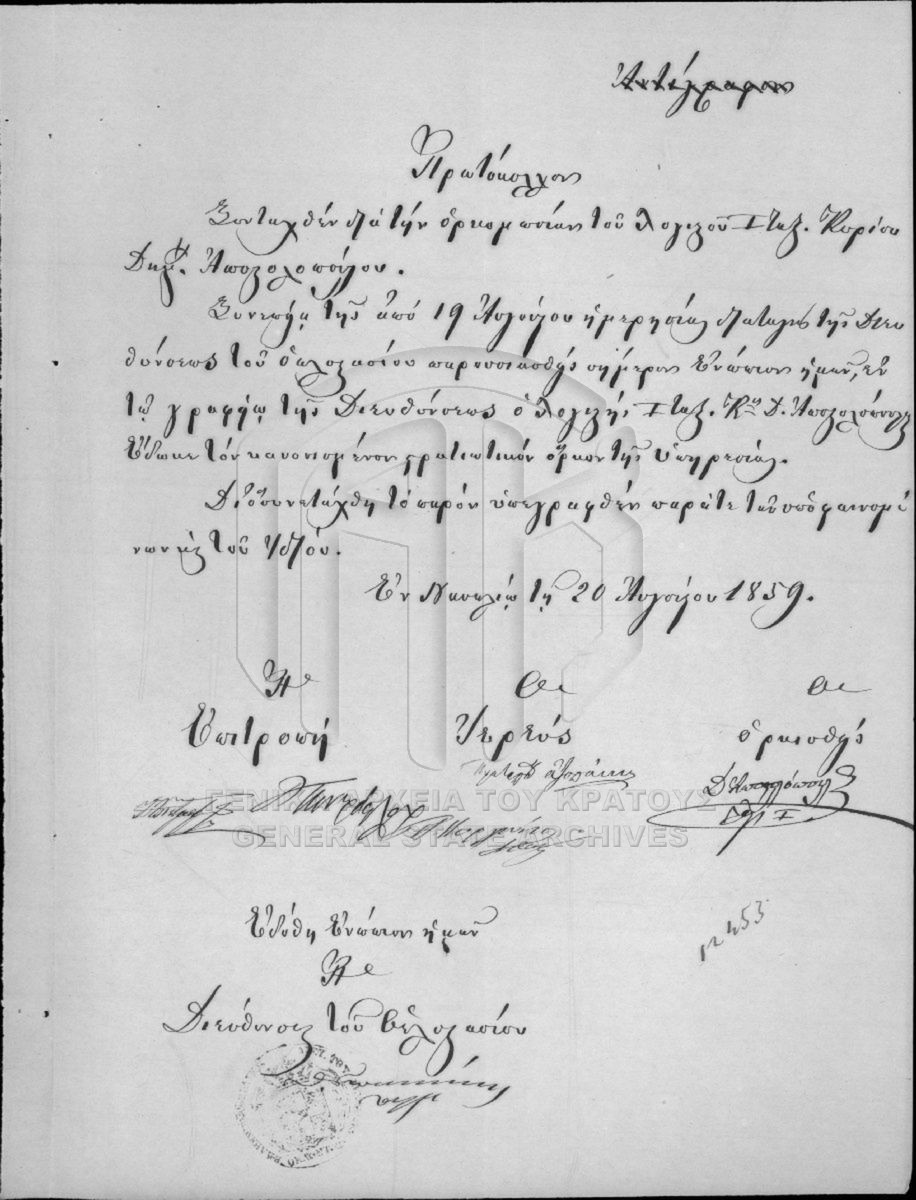 Ἀντίγραφον
Πρωτόκολλον
Συνταχθὲν διὰ τὴν ὁρκωμοσίαν τοῦ λογιστοῦ Ι τάξ. Κυρίου
Δημ. Ἀποστολοπούλου.
Συνεπείᾳ τῆς ἀπὸ 19 Αὐγούστου ἡμερησίας διαταγῆς τῆς Διευ
θύνσεως τοῦ ὁπλοστασίου παρουσιασθεὶς σήμερον ἐνώπιον ἡμῶν, ἐν
τῷ γραφείῳ τῆς Διευθύνσεως ὁ λογιστὴς Ι τάξ. Κος Δ. Ἀποστολόπουλος
ἔδωκε τὸν κανονισμένον στρατιωτικὸν ὅρκον τῆς ὑπηρεσίας.
Διὸ συνετάχθη τὸ παρὸν ὑπεγράφθεν παρά τε τῶν ὑποφαινομέ
νων καὶ τοῦ ἰδίου.
Ἐν Ναυπλίῳ τῇ 20 Αὐγούστου 1859.
Ἡ Ὁ Ὁ
Ἐπιτροπὴ Ἱερεύς ὁρκισθείς
ΓΕΝΙΚΑ ΑΡΧΕΙΑ ΤΟΥ ΚΡΑΤΟΥΣ
GENERAL STATE ARCHIVES
Ἐδόθη ἐνώπιον ἡμῶν
453
Ἡ
Διεύθυνσις τοῦ Ὁπλοστασίου